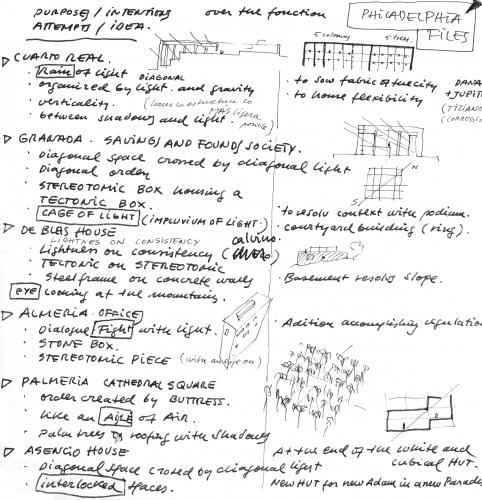 PURPOSES / INTENTIONS over the function
ATTEMPTS / IDEA.
PHILADELPHIA
FILES
5 columns 5 trees
CUARTO REAL.
· Rain of light DIAGONAL
· organized by light and gravity
· verticality.
MAS ligera
posible)
· between shadows and light.
· to sow fabric of the city
· to house flexibility
DANA
+ JUPIT
(TIZIANO
(CORREGIO
GRANADA. SAVINGS AND FOUND SOCIETY.
· Diagonal space crossed by diagonal light
· Diagonal order
· STEREOTOMIC BOX housing a
TECTONIC BOX.
· CAGE OF LIGHT (IMPLUVIUM OF LIGHT.)
N
S
· to resolv context with podium.
· courtyard building (ring).
DE BLAS HOUSE
LIGHTNES ON CONSISTENCY calvino.
· Lightness on consistency
· TECTONIC on STEREOTOMIC
· Steel frame on concrete walls
EYE looking at the mountains.
· Basement resolvs slope.
ALMERIA OFFICE
· Dialogue Fight with light.
· STONE BOX.
· STEREOTOMIC PIECE (with an eye on)
· Adition accomplishing regulation
PALMERIA CATHEDRAL SQUARE
· order created by BUTTRESS.
· like an AISLE of AIR.
· Palm trees roofing with shadows
ASENCIO HOUSE
· Diagonal space crossed by diagonal light
· interlocked spaces.
At the end of the white and
cubical HUT.
New HUT for new Adam in a new Paradis